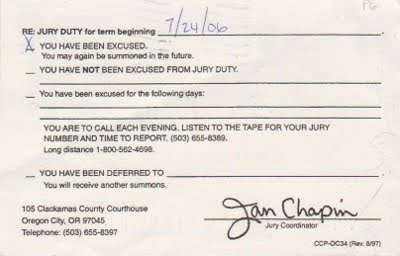 P6
RE: JURY DUTY for term beginning 7/24/06
X YOU HAVE BEEN EXCUSED.
You may again be summoned in the future.
YOU HAVE NOT BEEN EXCUSED FROM JURY DUTY.
You have been excused for the following days:
YOU ARE TO CALL EACH EVENING. LISTEN TO THE TAPE FOR YOUR JURY
NUMBER AND TIME TO REPORT. (503) 655-8389.
Long distance 1-800-562-4698.
YOU HAVE BEEN DEFERRED TO
You will receive another summons.
105 Clackamas County Courthouse
Oregon City, OR 97045
Telephone: (503) 655-8397
Jan Chapin
Jury Coordinator
CCP-OC34 (Rev. 8/97)